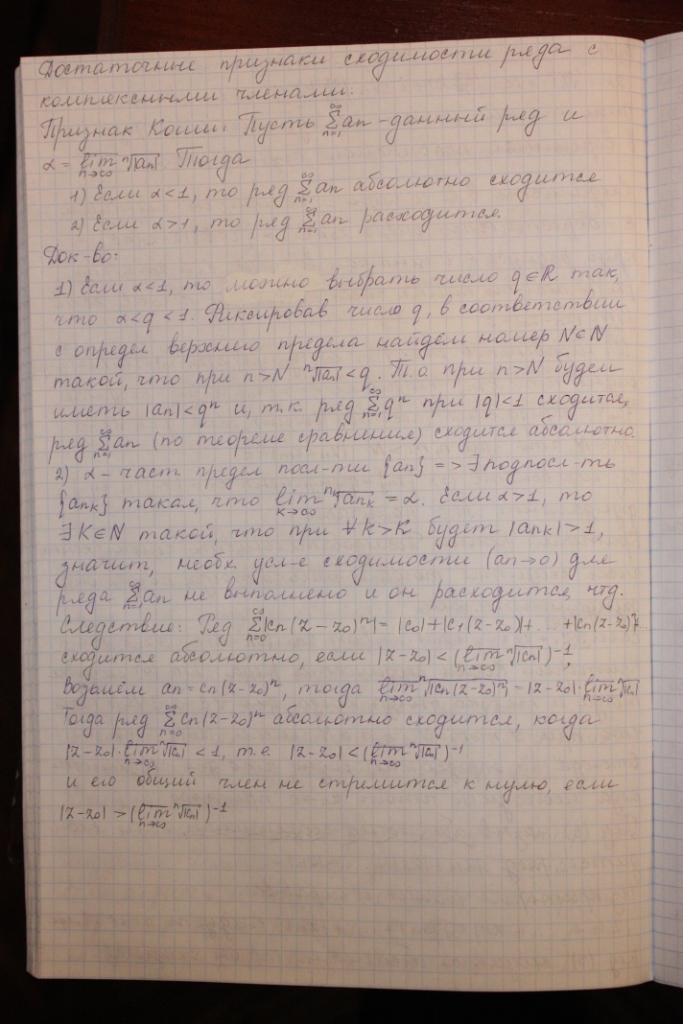 Достаточные признаки сходимости ряда с
комплексными членами:
Признак Коши: Пусть ∑_{n=1}^{∞} an - данный ряд и
α = \overline{lim}_{n→∞} ⁿ√|an|. Тогда
1) Если α<1, то ряд ∑_{n=1}^{∞} an абсолютно сходится
2) Если α>1, то ряд ∑_{n=1}^{∞} an расходится.
Док-во:
1) Если α<1, то можно выбрать число q∈R так,
что α<q<1. Фиксировав число q, в соответствии
с определ верхнего предела найдём номер N∈N
такой, что при n>N ⁿ√|an|<q. Т.о при n>N будем
иметь |an|<qⁿ и, т.к. ряд ∑_{n=1}^{∞} qⁿ при |q|<1 сходится,
ряд ∑_{n=1}^{∞} an (по теореме сравнения) сходится абсолютно.
2) α - част предел посл-ти {an} => ∃ подпосл-ть
{ank} такая, что lim_{k→∞} ⁿᵏ√ank = α. Если α>1, то
∃ K∈N такой, что при ∀k>K будет |ank|>1,
значит, необх. усл-е сходимости (an→0) для
ряда ∑_{n=1}^{∞} an не выполнено и он расходится, чтд.
Следствие: Ряд ∑_{n=0}^{∞} |cn(z-z0)ⁿ| = |c0|+|c1(z-z0)|+ ... +|cn(z-z0)ⁿ|+
сходится абсолютно, если |z-z0| < (\overline{lim}_{n→∞} ⁿ√|cn|)⁻¹,
Возьмём an=cn(z-z0)ⁿ, тогда \overline{lim}_{n→∞} ⁿ√|cn(z-z0)ⁿ| = |z-z0|·\overline{lim}_{n→∞} ⁿ√|cn|
Тогда ряд ∑_{n=0}^{∞} cn(z-z0)ⁿ абсолютно сходится, когда
|z-z0|·\overline{lim}_{n→∞} ⁿ√|cn| < 1, т.е. |z-z0| < (\overline{lim}_{n→∞} ⁿ√|cn|)⁻¹
и его общий член не стремится к нулю, если
|z-z0| > (\overline{lim}_{n→∞} ⁿ√|cn|)⁻¹